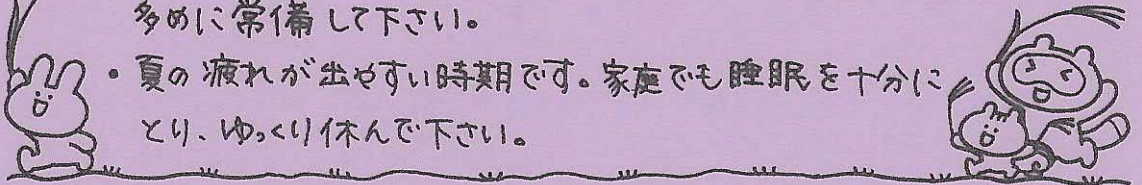 多めに常備して下さい。
・夏の疲れが出やすい時期です。家庭でも睡眠を十分に
とり、ゆっくり休んで下さい。